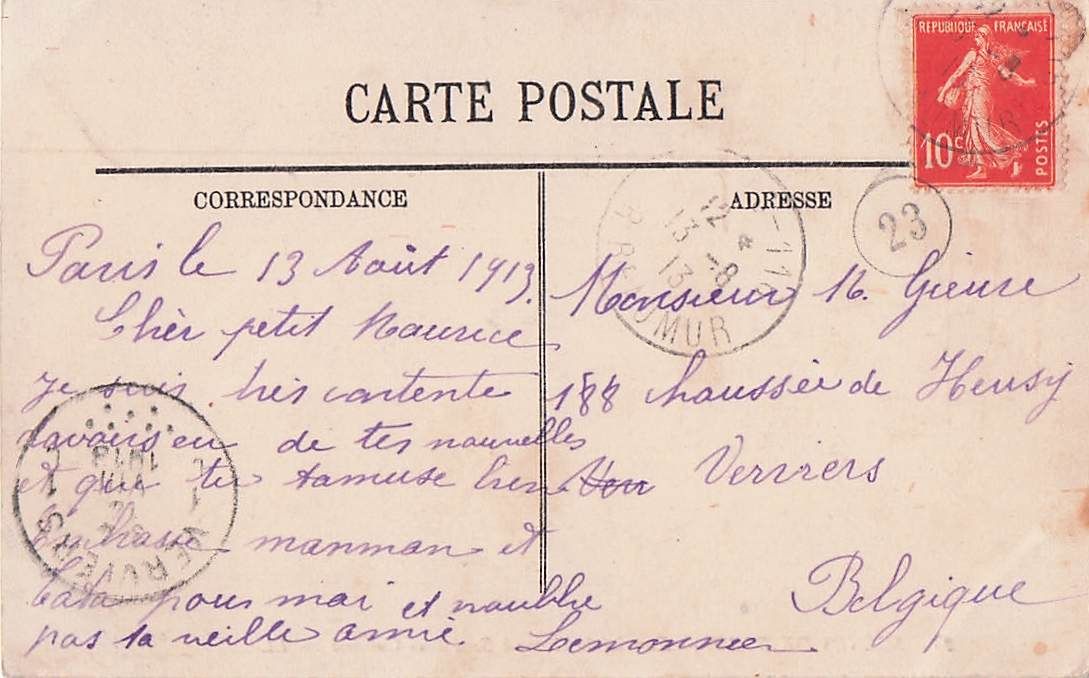 CARTE POSTALE
RÉPUBLIQUE FRANÇAISE
10c
POSTES
CORRESPONDANCE
ADRESSE
23
Paris le 13 Août 1913.
Chèr petit Maurice
Je suis très contente
davoirs eu de tes nouvelles
et que tu tamuse bien
Embrasse manman et
pour moi et noublie
pas ta vieille amie. Lemonnier
Monsieur M. Gieure
188 chaussée de Heusy
Verviers
Belgique
12 *
13 -8
13
R. RÉAUMUR
VERVIERS
1913